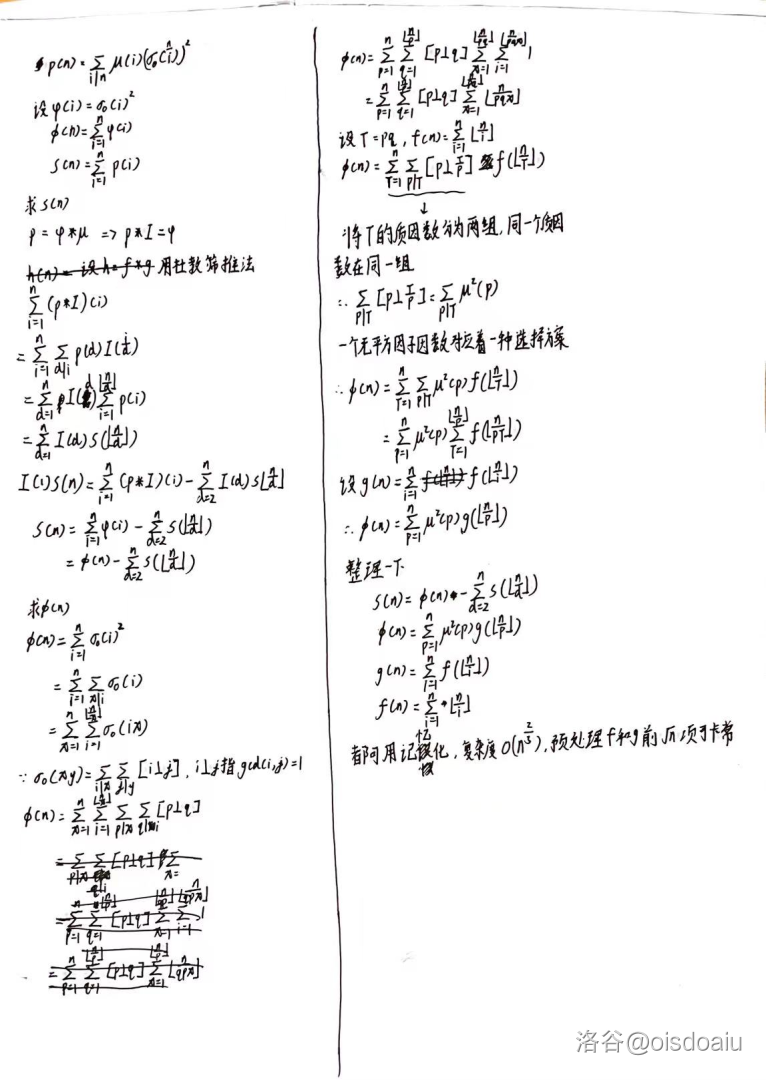 ρ(n)=∑_{i|n} μ(i)(σ₀(n/i))²
设 φ(i)=σ₀(i)²
ϕ(n)=∑_{i=1}^{n} φ(i)
S(n)=∑_{i=1}^{n} ρ(i)
求S(n)
ρ=φ*μ => ρ*I=φ
用杜教筛推法
∑_{i=1}^{n} (ρ*I)(i)
=∑_{i=1}^{n} ∑_{d|i} ρ(d)I(i/d)
=∑_{d=1}^{n} I(d)∑_{i=1}^{⌊n/d⌋} ρ(i)
=∑_{d=1}^{n} I(d)S(⌊n/d⌋)
I(1)S(n)=∑_{i=1}^{n} (ρ*I)(i)-∑_{d=2}^{n} I(d)S⌊n/d⌋
S(n)=∑_{i=1}^{n} φ(i)-∑_{d=2}^{n} S(⌊n/d⌋)
=ϕ(n)-∑_{d=2}^{n} S(⌊n/d⌋)
求ϕ(n)
ϕ(n)=∑_{i=1}^{n} σ₀(i)²
=∑_{i=1}^{n} ∑_{x|i} σ₀(i)
=∑_{x=1}^{n} ∑_{i=1}^{⌊n/x⌋} σ₀(ix)
∵ σ₀(xy)=∑_{i|x} ∑_{j|y} [i⊥j], i⊥j指gcd(i,j)=1
ϕ(n)=∑_{x=1}^{n} ∑_{i=1}^{⌊n/x⌋} ∑_{p|x} ∑_{q|i} [p⊥q]
=∑_{p=1}^{n} ∑_{q=1}^{⌊n/p⌋} [p⊥q] ∑_{x=1}^{⌊n/qp⌋} ∑_{i=1}^{⌊n/qpx⌋} 1
=∑_{p=1}^{n} ∑_{q=1}^{⌊n/p⌋} [p⊥q] ∑_{x=1}^{⌊n/qp⌋} ⌊n/qpx⌋
ϕ(n)=∑_{p=1}^{n} ∑_{q=1}^{⌊n/p⌋} [p⊥q] ∑_{x=1}^{⌊n/pq⌋} ∑_{i=1}^{⌊n/pqx⌋} 1
=∑_{p=1}^{n} ∑_{q=1}^{⌊n/p⌋} [p⊥q] ∑_{x=1}^{⌊n/pq⌋} ⌊n/pqx⌋
设T=pq, f(n)=∑_{i=1}^{n} ⌊n/i⌋
ϕ(n)=∑_{T=1}^{n} ∑_{p|T} [p⊥T/p] f(⌊n/T⌋)
↓
将T的质因数分为两组,同一个质因
数在同一组
∴ ∑_{p|T} [p⊥T/p]=∑_{p|T} μ²(p)
一个无平方因子因数对应着一种选择方案
∴ ϕ(n)=∑_{T=1}^{n} ∑_{p|T} μ²(p)f(⌊n/T⌋)
=∑_{p=1}^{n} μ²(p)∑_{T=1}^{⌊n/p⌋} f(⌊n/pT⌋)
设g(n)=∑_{i=1}^{n} f(⌊n/i⌋)
∴ ϕ(n)=∑_{p=1}^{n} μ²(p)g(⌊n/p⌋)
整理一下
S(n)=ϕ(n)-∑_{d=2}^{n} S(⌊n/d⌋)
ϕ(n)=∑_{p=1}^{n} μ²(p)g(⌊n/p⌋)
g(n)=∑_{i=1}^{n} f(⌊n/i⌋)
f(n)=∑_{i=1}^{n} ⌊n/i⌋
都可用记忆化,复杂度O(n^{2/3}),预处理f和g前√n项可卡常
洛谷@oisdoaiu